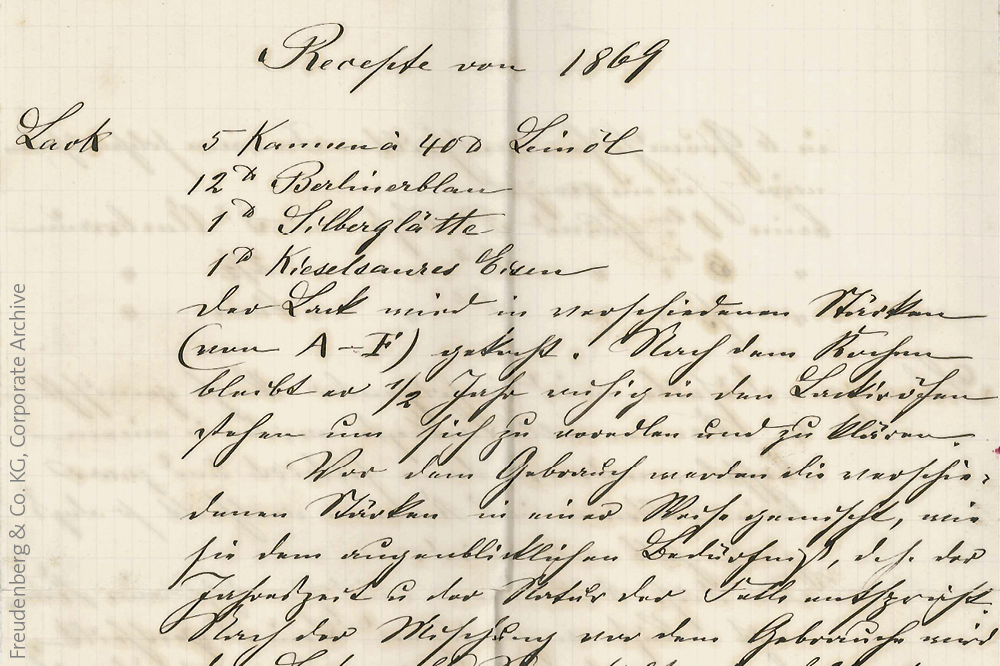 Recepte von 1869
Lack 5 Kannen à 40 ℔ Leinöl
12 ℔ Berlinerblau
1 ℔ Silberglätte
1 ℔ Kieselsaures Eisen
Der Lack wird in verschiedenen Stärken
(von A–F) gekocht. Nach dem Kochen
bleibt er 1/2 Jahr ruhig in den
stehen um sich zu veredlen und zu klären.
Vor dem Gebrauch werden die verschie-
denen Stärken in einer Weise gemischt, wie
sie dem augenblicklichen Bedürfniß, d.h. der
Jahreszeit u der Natur der Felle entspricht.
Nach der Mischung vor dem Gebrauche wird
Freudenberg & Co. KG, Corporate Archive